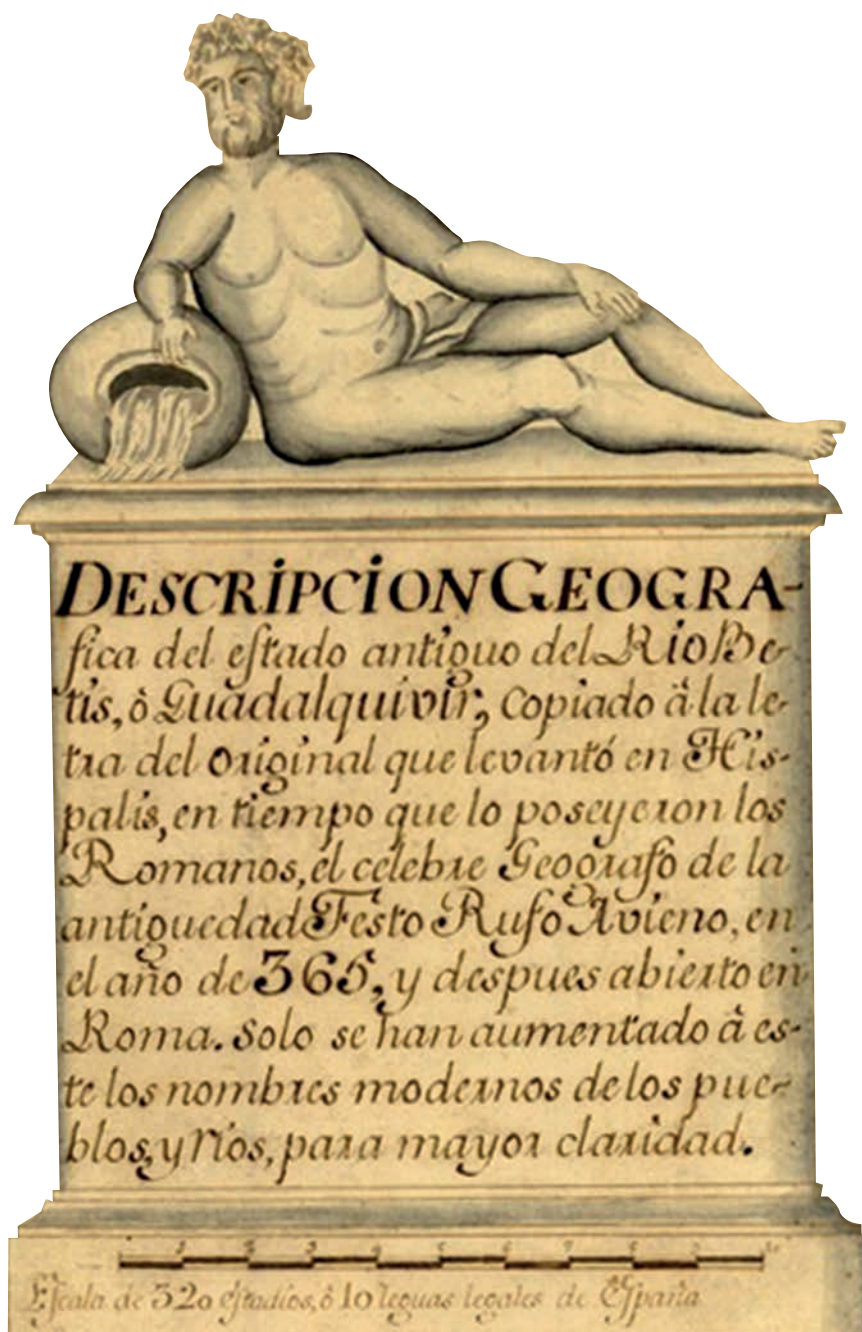 DESCRIPCION GEOGRA-
fica del estado antiguo del Rio Be-
tis, ò Guadalquivir, copiado â la le-
tra del original que levantó en His-
palis, en tiempo que lo poseyeron los
Romanos, el celebre Geografo de la
antiguedad Festo Rufo Avieno, en
el año de 365, y despues abierto en
Roma. Solo se han aumentado â es-
te los nombres modernos de los pue-
blos, y rios, para mayor claridad.
1 2 3 4 5 6 7 8 9 10
Escala de 320 estadios, ò 10 leguas legales de España